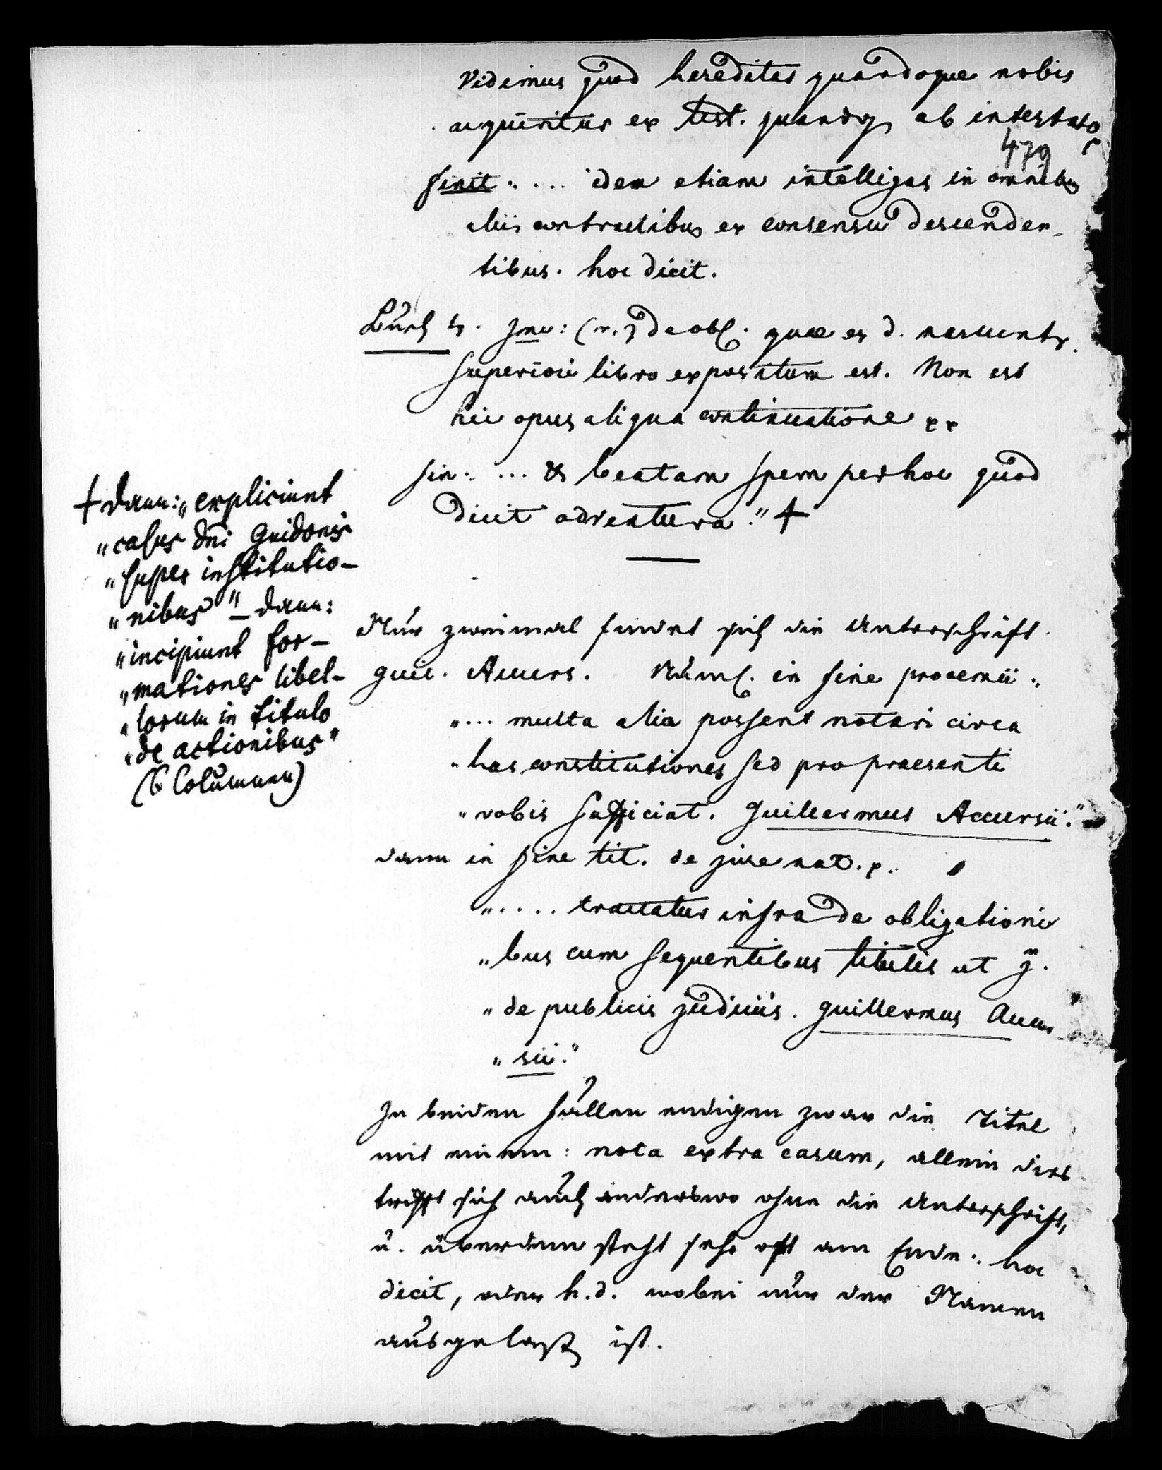 Vidimus quod hereditas quandoque nobis
acquiritur ex test. quandoq ab intestato
479
finit: .... idem etiam intelligas in omnibus
aliis contractibus ex consensu descenden-
tibus. hoc dicit.
Buch 4. Inc: de obl. quae ex d. nascuntr.
superiori libro expositum est. Non est
hic opus aliqua continuatione xx
fin: ... & beatam spem per hoc quod
dicit adventura." +
+ dann: "expliciunt
"casus dni Guidonis
"super institutio-
"nibus" - dann:
"incipiunt for-
"mationes libel-
"lorum in titulo
"de actionibus"
(6 Columnen)
Nur zweimal findet sich die Unterschrift
guil. Accurs. Näml. in fine procemii:
".... multa alia possent notari circa
"has constitutiones sed pro praesenti
"vobis sufficiat. Guillermus Accursii."
dann in fine tit. de jure nat. p.
"..... tractatus infra de obligationi
"bus cum sequentibus titulis ut j.
"de publicis judiciis. guillermus Accur
"sii."
In beiden Fällen endigen zwar die Titel
mit einem: nota extra casum, allein dies
trifft sich auch anderswo ohne die Unterschrift,
u. überdem steht sehr oft am Ende: hoc
dicit, oder h.d. wobei nur der Namen
ausgelaßen ist.